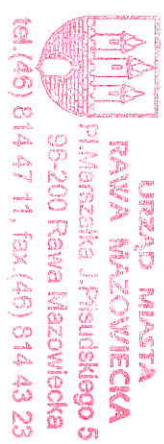 URZĄD MIASTA
RAWA MAZOWIECKA
Pl. Marszałka J. Piłsudskiego 5
96-200 Rawa Mazowiecka
tel.(46) 814 47 11, fax.(46) 814 43 23